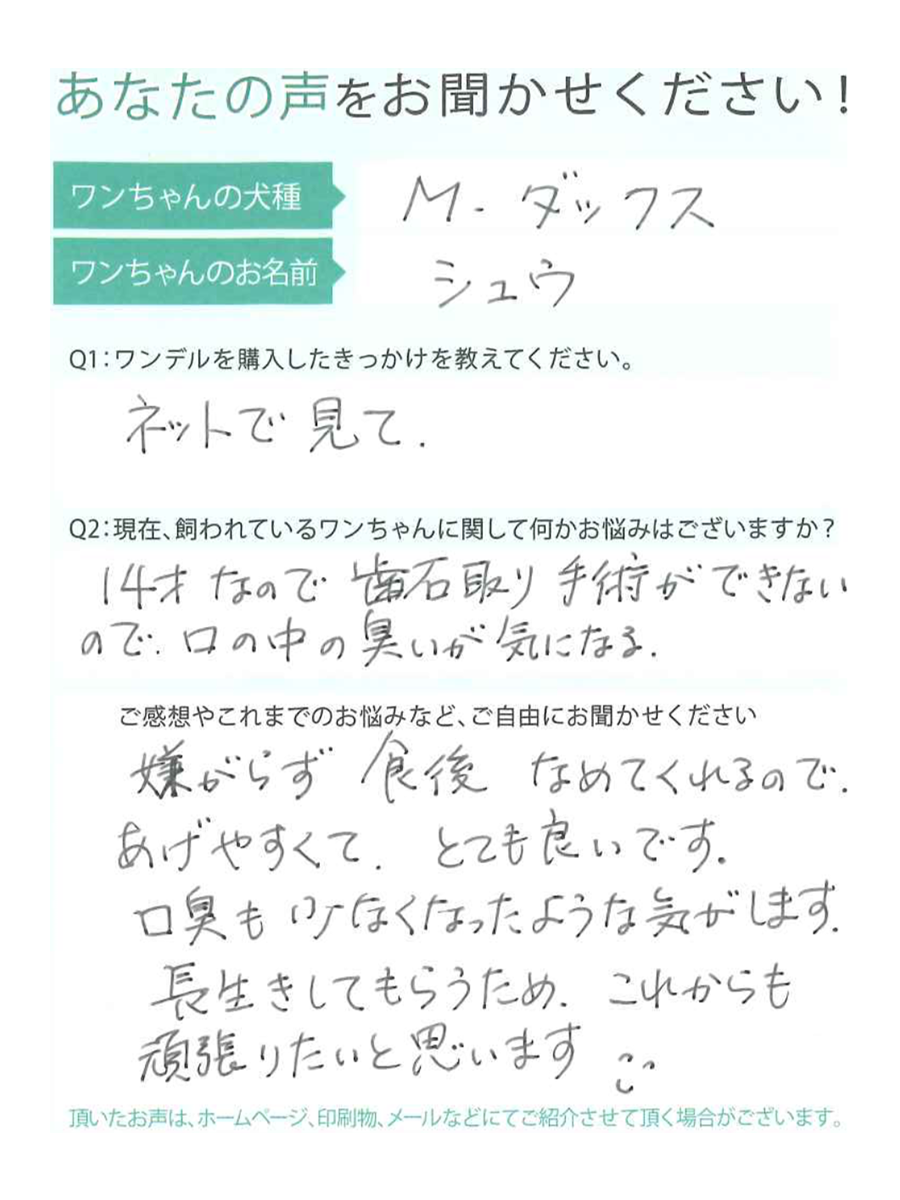 あなたの声をお聞かせください!
ワンちゃんの犬種
M. ダックス
ワンちゃんのお名前
シュウ
Q1:ワンデルを購入したきっかけを教えてください。
ネットで見て.
Q2:現在、飼われているワンちゃんに関して何かお悩みはございますか?
14才なので歯石取り手術ができない
ので.口の中の臭いが気になる.
ご感想やこれまでのお悩みなど、ご自由にお聞かせください
嫌がらず食後なめてくれるので.
あげやすくて.とても良いです。
口臭も少なくなったような気がします.
長生きしてもらうため.これからも
頑張りたいと思います
頂いたお声は、ホームページ、印刷物、メールなどにてご紹介させて頂く場合がございます。